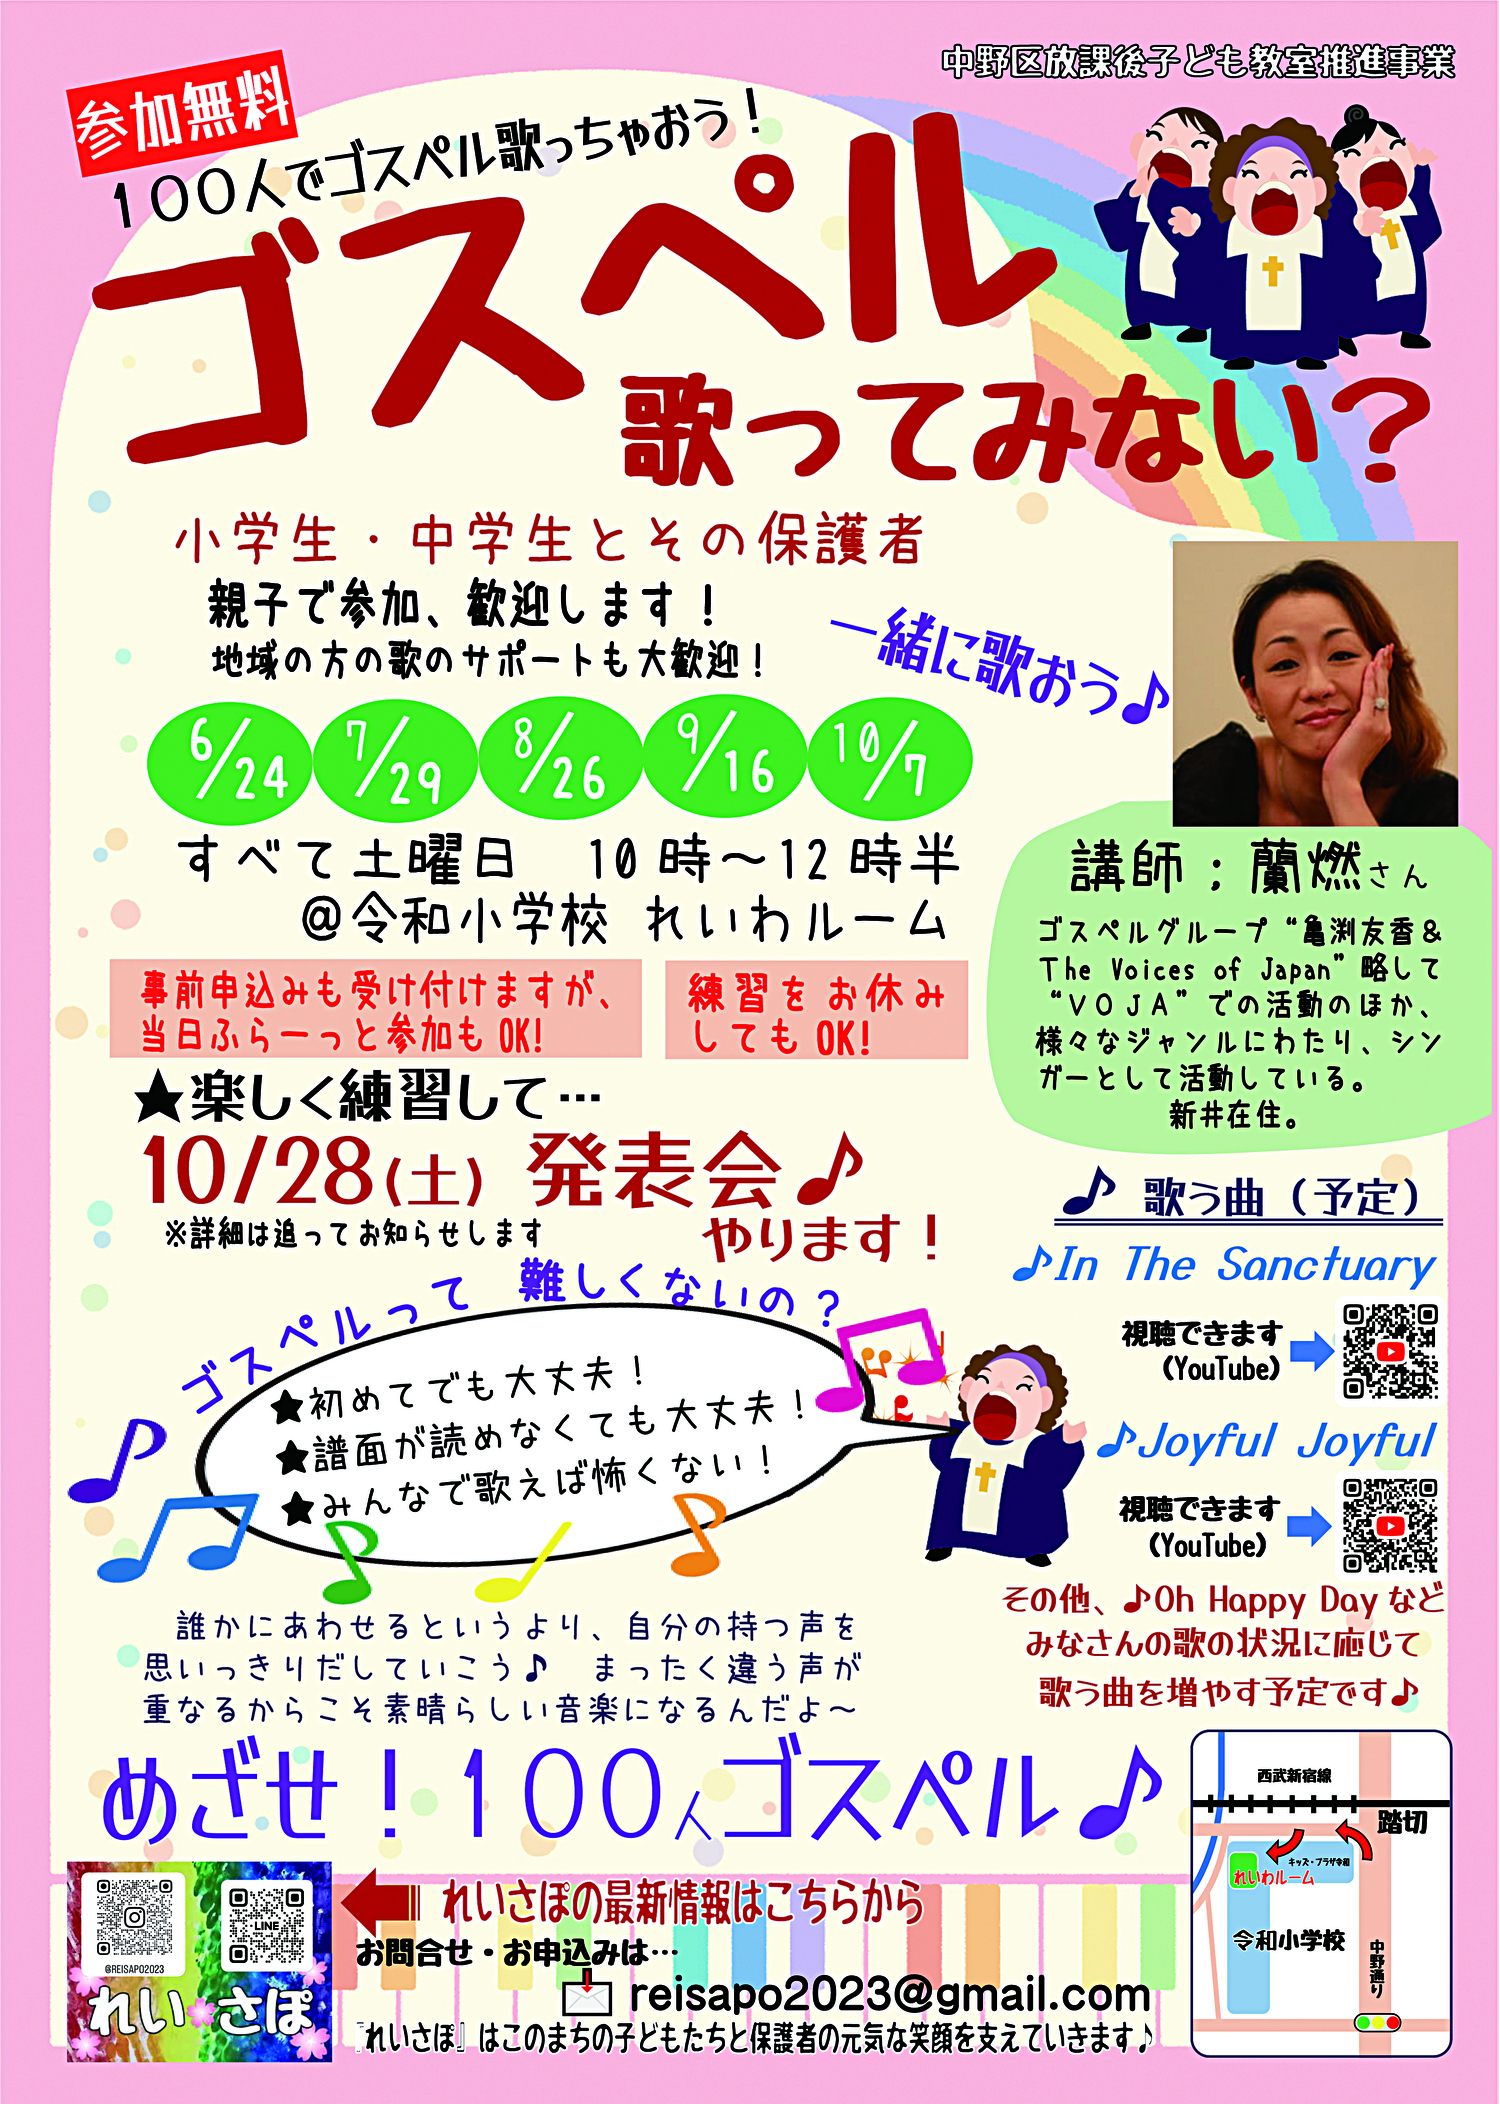 中野区放課後子ども教室推進事業
参加無料
100人でゴスペル歌っちゃおう！
ゴスペル
歌ってみない？
小学生・中学生とその保護者
親子で参加、歓迎します！
地域の方の歌のサポートも大歓迎！
一緒に歌おう♪
6/24 7/29 8/26 9/16 10/7
すべて土曜日　10時～12時半
@令和小学校 れいわルーム
事前申込みも受け付けますが、
当日ふらーっと参加もOK!
練習をお休み
してもOK!
講師；蘭燃さん
ゴスペルグループ“亀渕友香＆
The Voices of Japan”略して
“ＶＯＪＡ”での活動のほか、
様々なジャンルにわたり、シン
ガーとして活動している。
新井在住。
★楽しく練習して…
10/28(土) 発表会♪
※詳細は追ってお知らせします
やります！
ゴスペルって 難しくないの？
★初めてでも大丈夫！
★譜面が読めなくても大丈夫！
★みんなで歌えば怖くない！
♪ 歌う曲（予定）
♪In The Sanctuary
視聴できます
(YouTube)
♪Joyful Joyful
視聴できます
(YouTube)
その他、♪Oh Happy Dayなど
みなさんの歌の状況に応じて
歌う曲を増やす予定です♪
誰かにあわせるというより、自分の持つ声を
思いっきりだしていこう♪　まったく違う声が
重なるからこそ素晴らしい音楽になるんだよ～
めざせ！100人ゴスペル♪
西武新宿線
踏切
キッズ・プラザ令和
れいわルーム
令和小学校
中野通り
@REISAPO2023
LINE
れいさぽ
れいさぽの最新情報はこちらから
お問合せ・お申込みは…
reisapo2023@gmail.com
『れいさぽ』はこのまちの子どもたちと保護者の元気な笑顔を支えていきます♪